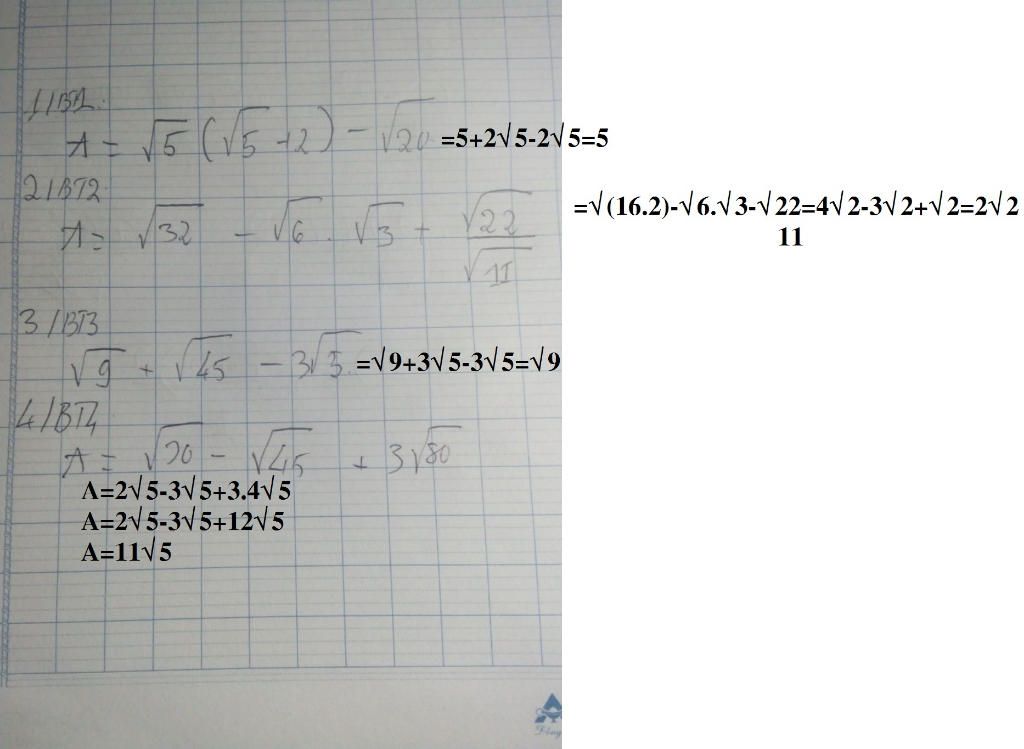 1/BT1.
A = √5 (√5 + 2) - √20 =5+2√5-2√5=5
2/BT2
A = √32 - √6 . √3 + √22/√11 =√(16.2)-√6.√3-√22=4√2-3√2+√2=2√2
11
3/BT3
√9 + √45 - 3√5 =√9+3√5-3√5=√9
4/BT4
A = √20 - √45 + 3√80
A=2√5-3√5+3.4√5
A=2√5-3√5+12√5
A=11√5